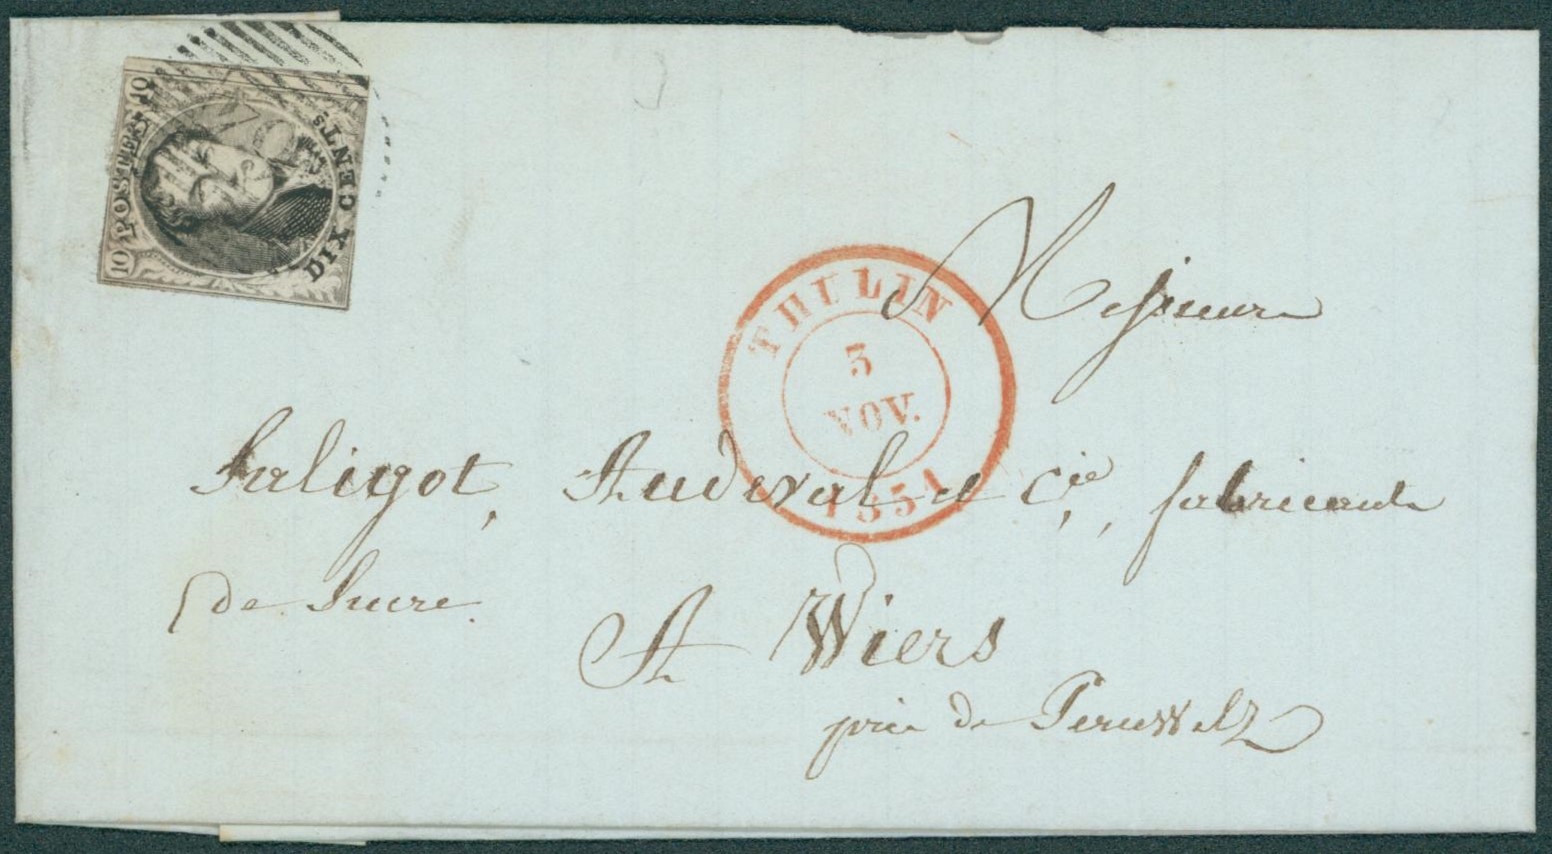 10 POSTES 10
DIX CENTS
THULIN
3
NOV.
1851
Messieurs
Saligot, Audeval et Cie, fabricants
de Sucre.
A Wiers
près de Peruwelz